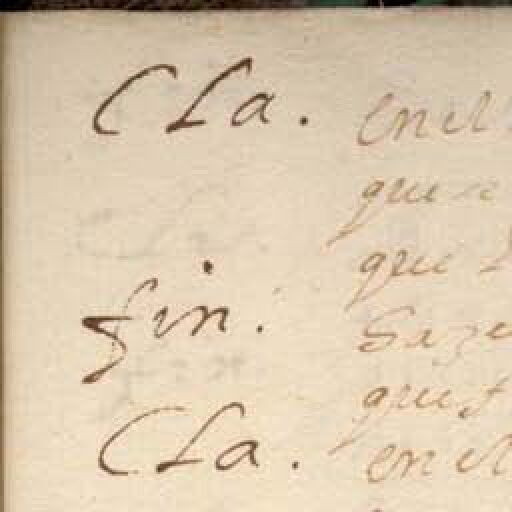 Cla. en el
que
que
fin. haze
que
Cla. en el